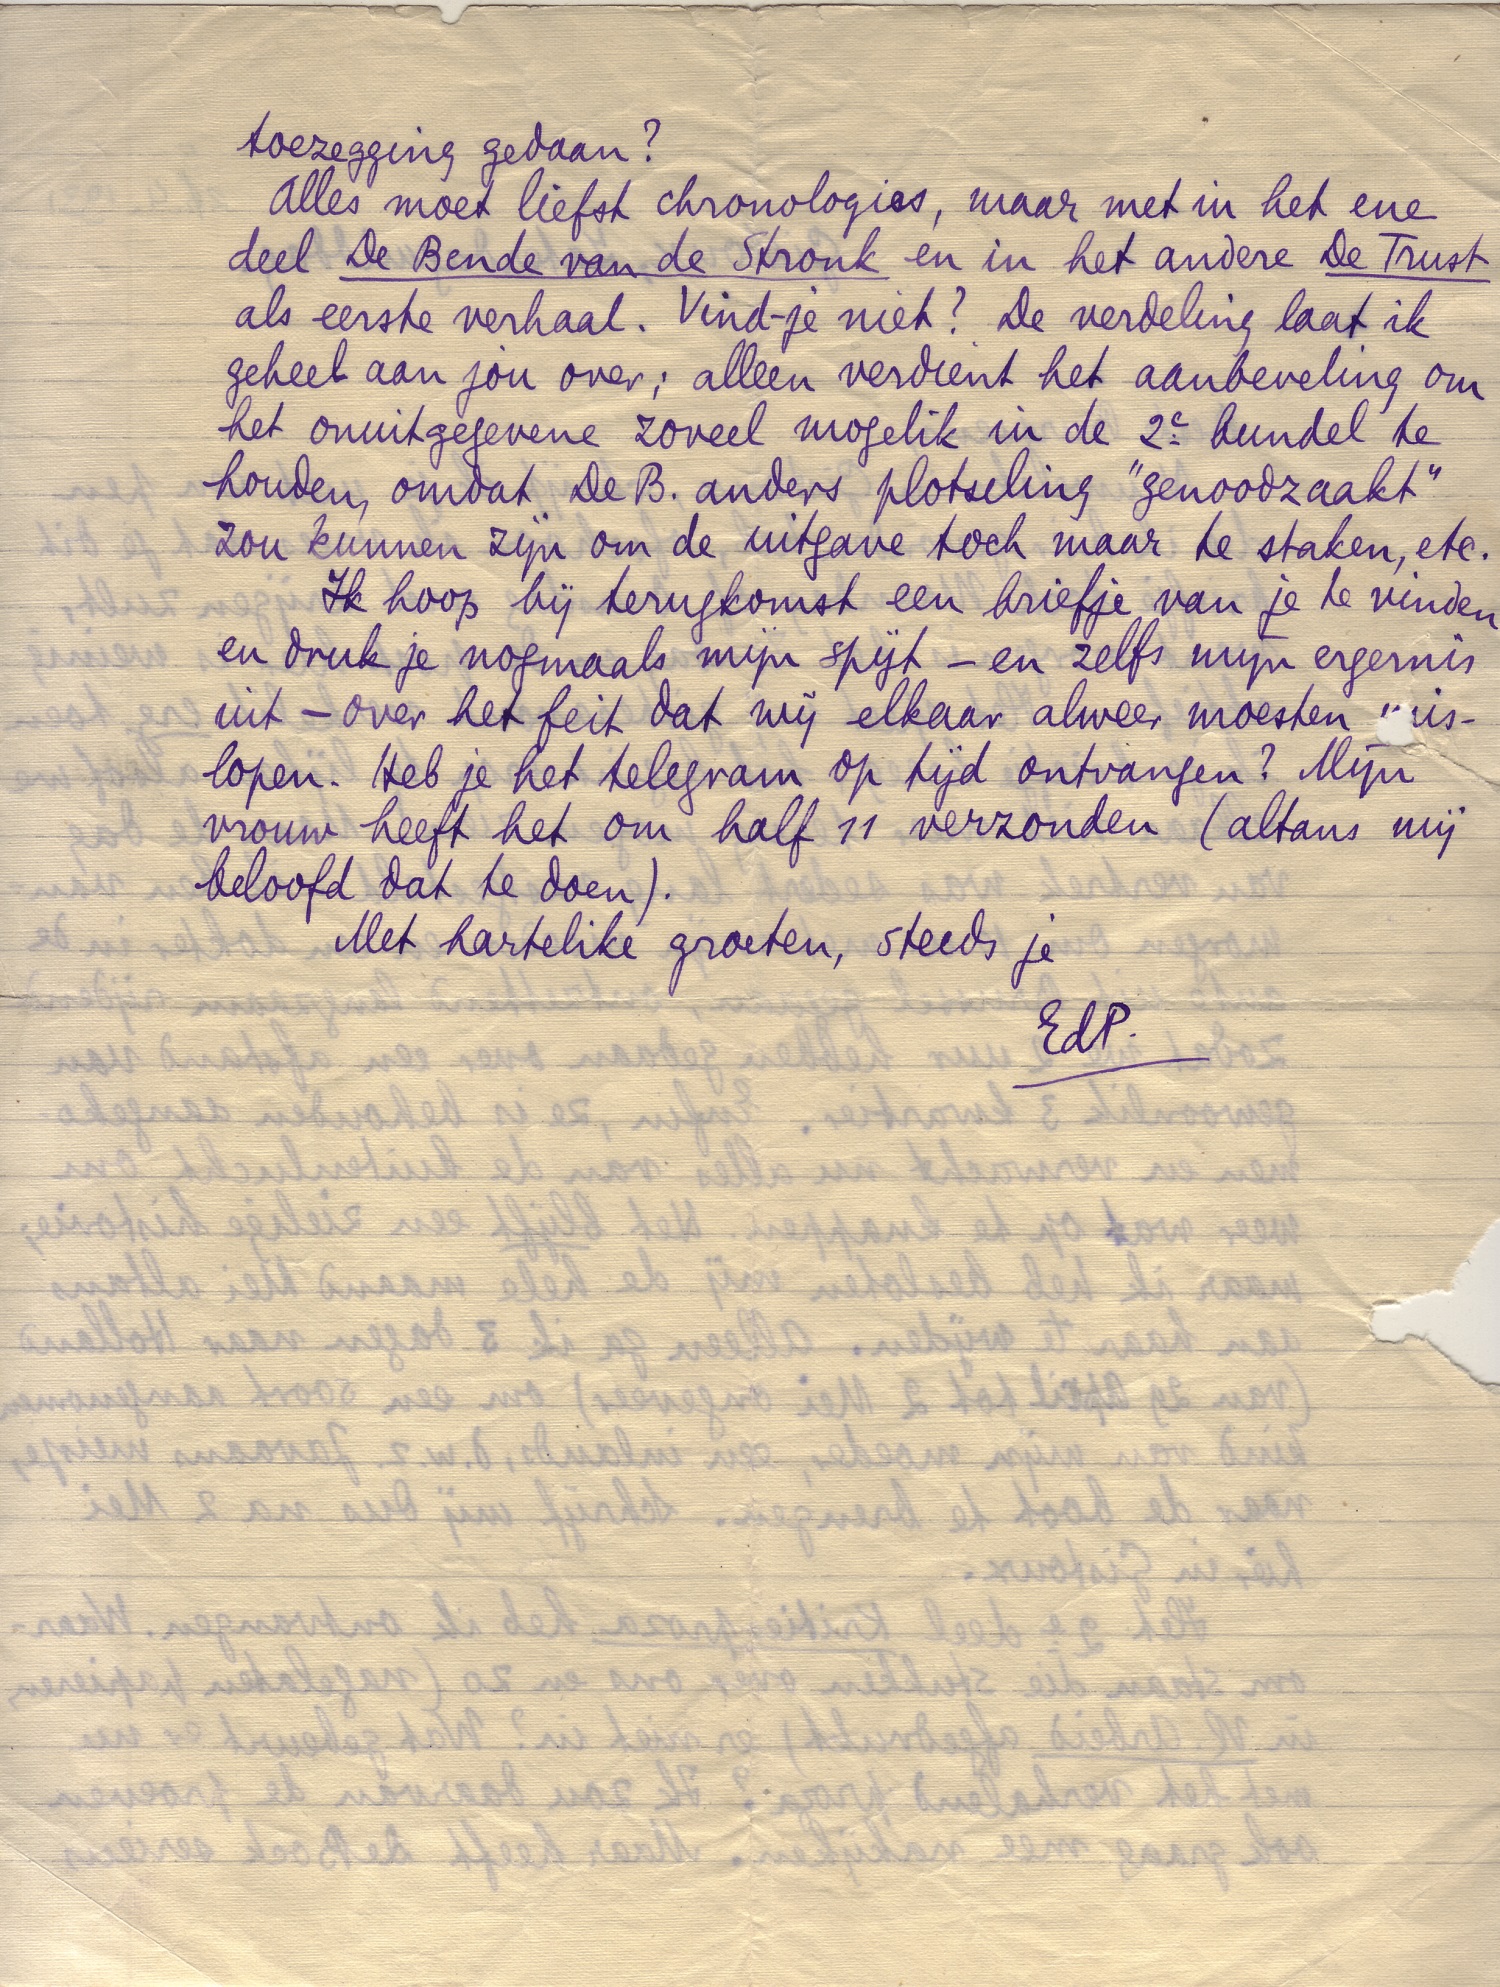 toezegging gedaan?
Alles moet liefst chronologies, maar met in het ene
deel De Bende van de Stronk en in het andere De Trust
als eerste verhaal. Vind-je niet? De verdeling laat ik
geheel aan jou over; alleen verdient het aanbeveling om
het onuitgegevene zoveel mogelik in de 2e bundel te
houden, omdat De B. anders plotseling "genoodzaakt"
zou kunnen zijn om de uitgave toch maar te staken, etc.
Ik hoop bij terugkomst een briefje van je te vinden
en druk je nogmaals mijn spijt – en zelfs mijn ergernis
uit – over het feit dat wij elkaar alweer moesten mis-
lopen. Heb je het telegram op tijd ontvangen? Mijn
vrouw heeft het om half 11 verzonden (altans mij
beloofd dat te doen).
Met hartelike groeten, steeds je
EdP.